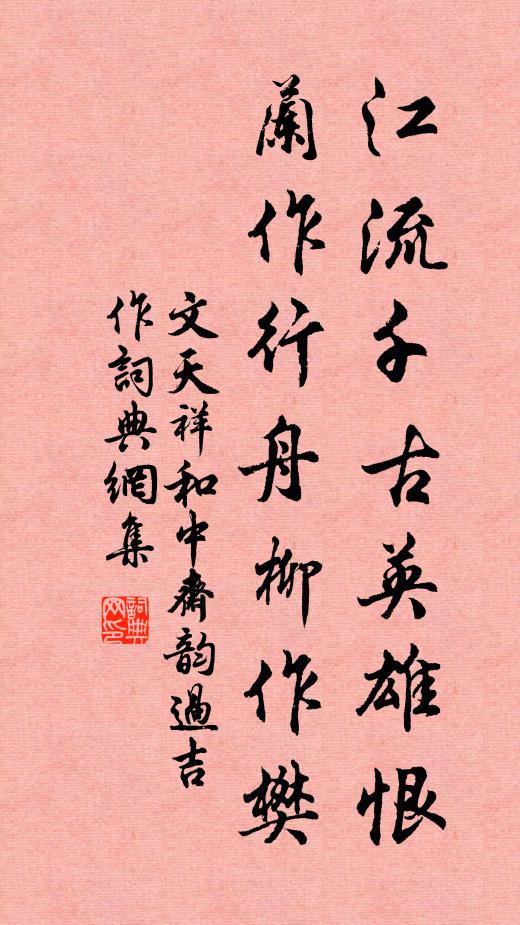 江流千古英雄恨
蘭作行舟柳作樊
文天祥和中齋韵過吉
作詞典網集
詞典
网印